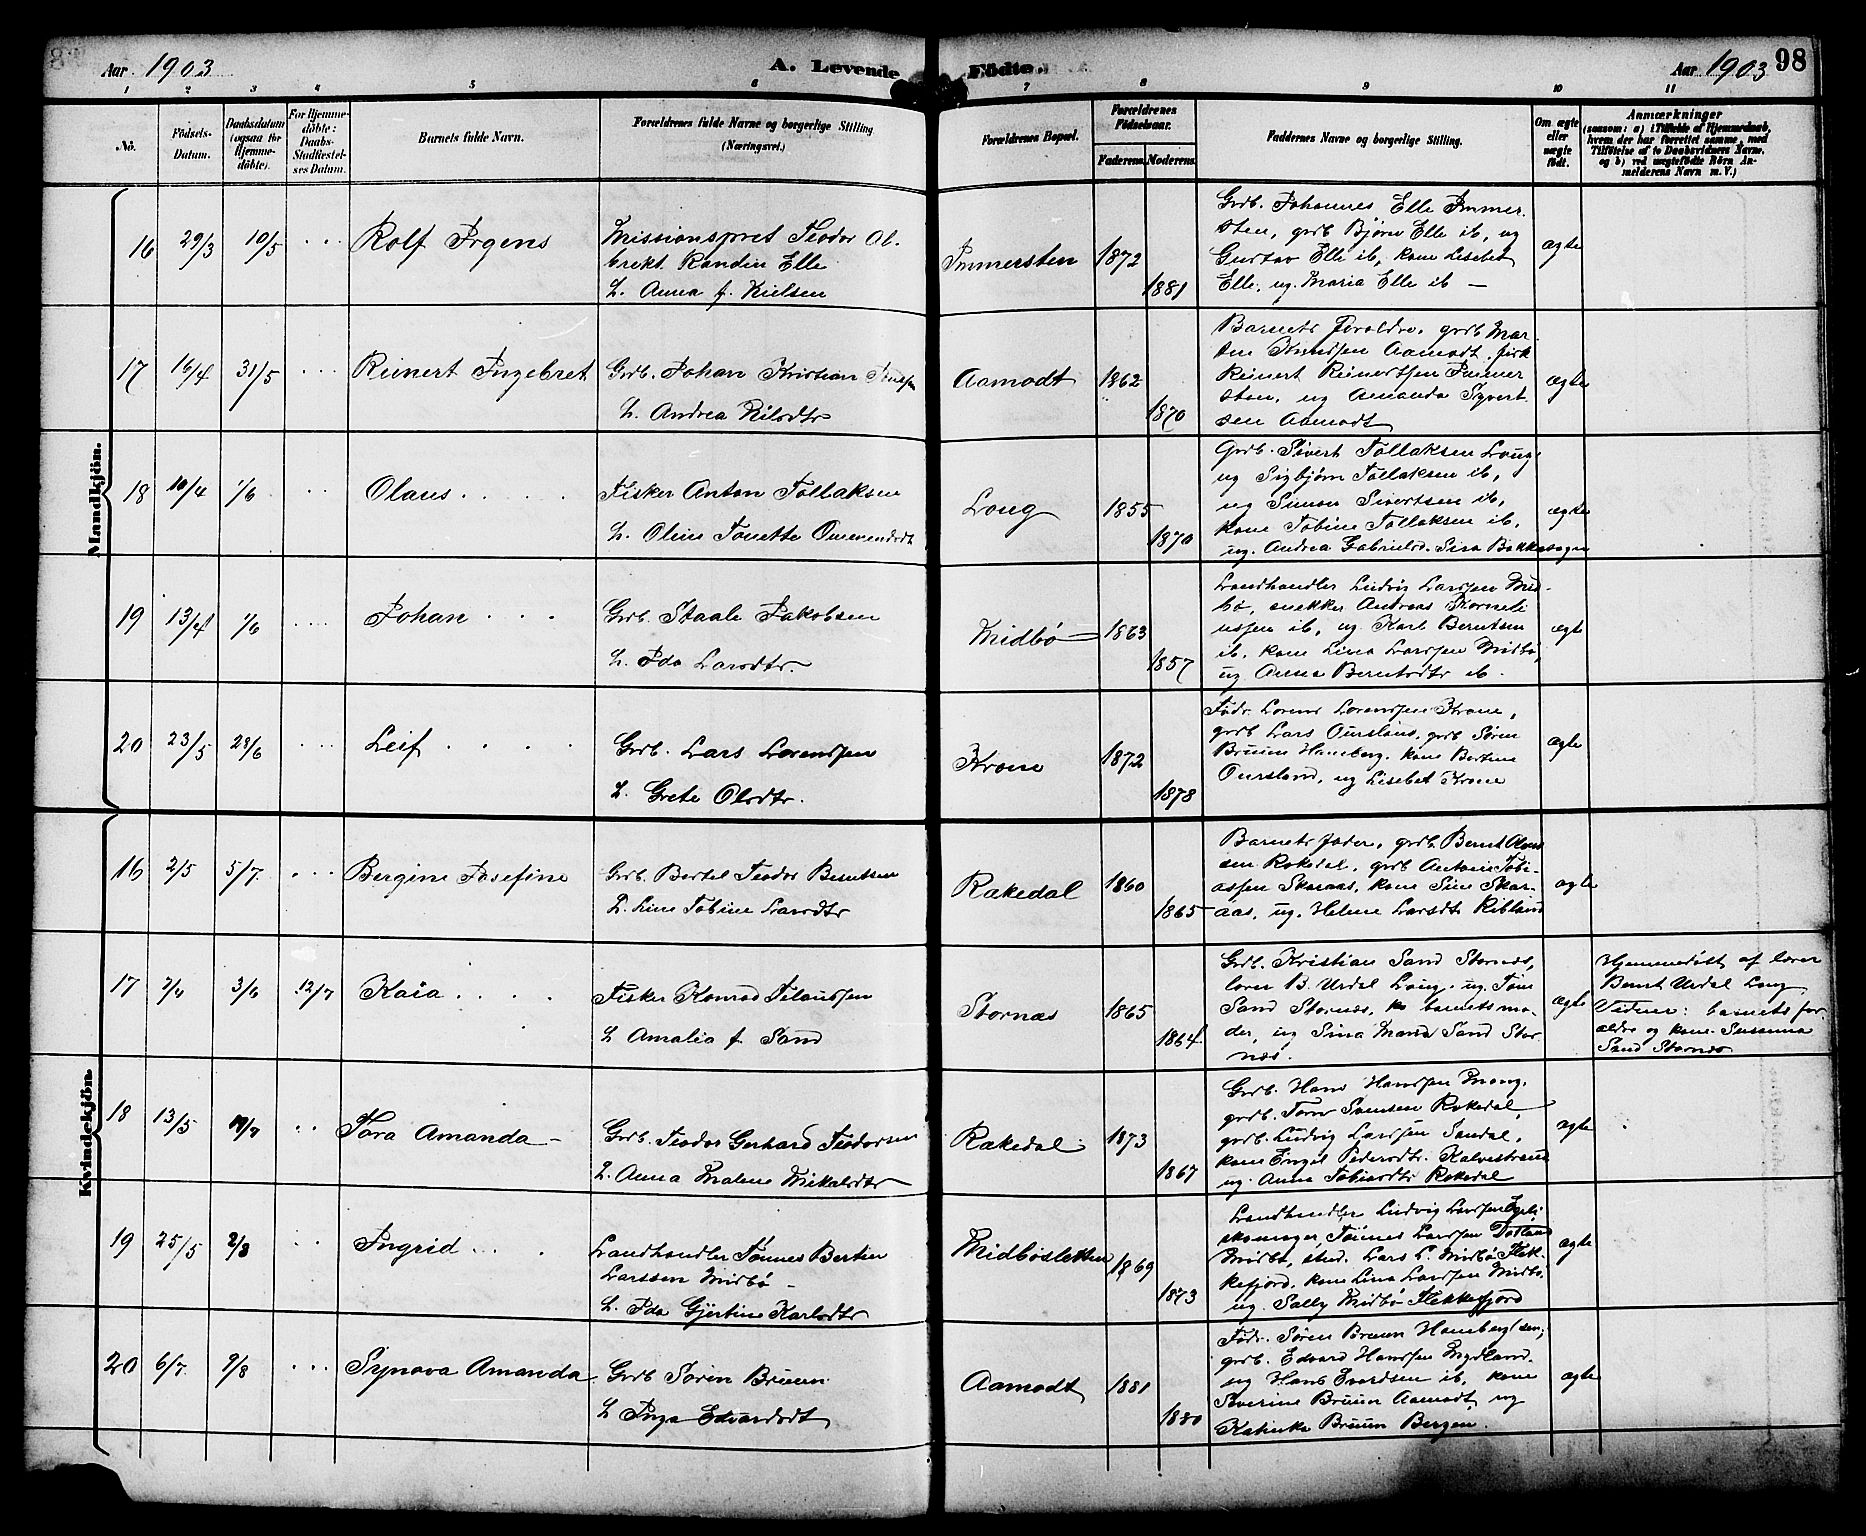 Aar 1903
A. Levende Födte.
Aar 1903 98
1 2 3 4 5 6 7 8 9 10 11
No.
Födsels-
Datum.
Daabsdatum
(ogsaa for
Hjemme-
döbte).
For Hjemme-
döbte:
Daabs-
Stadfæstel-
ses Datum.
Barnets fulde Navn.
Forældrenes fulde Navne og borgerlige Stilling
(Næringsvei.)
Forældrenes Bopæl.
Forældrenes
Födselsaar.
Faderens. Moderens.
Faddernes Navne og borgerlige Stilling.
Om ægte
eller
uægte
födt.
Anmærkninger
(saasom: a) i Tilfælde af Hjemmedaab,
hvem der har forrettet samme, med
Tilföielse af to Daabsvidners Navne,
og b) ved uægtefödte Börn An-
melderens Navn m. V.)
Mandkjön.
16 29/3 10/5
Rolf Irgens
Missionspret Teodor Ol-
brekt Randin Elle
h. Anna f. Nielsen
Immersten 1872
1881
Grdb. Johannes Elle Immer-
sten, grdb Bjørn Elle ib, ug
Gustav Elle ib, kone Lisebet
Elle, ug. Maria Elle ib —
ægte
17 16/4 31/5
Reinert Ingebret
Grdb. Johan Kristian
h. Andrea Nilsdtr
Aamodt 1862
1870
Barnets Foraldre, grdb Mar-
tin Knudsen Aamodt, fisk
Reinert Reinertsen Immer
sten, ug Amanda Syvert
sen Aamodt
ægte
18 10/4 1/6
Olaus
Fisker Anton Tollaksen
h. Oline Tonette
Loug 1855
1870
Grdb. Sivert Tollaksen Loug
ug Sigbjørn Tollaksen ib,
ug Simon Sivertsen ib,
kone Tobine Tollaksen ib,
ug. Andrea Gabrielsd. Sira Bakke sogn
ægte
19 13/4 1/6
Johan
Grdb. Staale Jakobsen
h. Ida Larsdtr
Midbø 1863
1857
Landhandler Ludvig Larssen Mid-
bø, snekker Andreas Korneli
ussen ib, ug Karl Berntsen
ib, kone Lina Larssen Midbø,
ug Anna Berntsdtr ib.
ægte
20 23/5 28/6
Leif
Grdb. Lars Lorentsen
h. Grete Olsdtr.
Krone 1872
1878
Födr. Lorens Lorentsen Krone,
grdb Lars Oursland, grdb Søren
Bruun Haneberg, kone Bertine
Oursland, ug Lisebet Krone
ægte
Kvindekjön.
16 2/5 5/7
Bergine Josefine
Grdb. Bertel Teodor Berntsen
h. Line Tobine Larsdtr
Rækedal 1860
1865
Barnets fader, grdb. Bernt Olaus
sen Rækedal, grdb Anton Tobi-
assen Skaraas, kone Sine Skar-
aas, ug. Helene Larsdt. Ribland
ægte
17 3/6 12/7
Kaia
Fisker Konrad Tilaussen
h Amalia f. Sand
Stornæs 1865
1864
Grdb. Kristian Sand Stornæs,
lærer B. Urdal Loug, ug. Tom
Sand Stornæs, barnets mo-
der, ug Sina Maria Sand Stor-
næs.
ægte
Hjemmedøbt af lærer
Bernt Urdal Loug
Vidner: barnets for-
ældre og kone Susanna
Sand Stornæs
18 13/5
Tora Amanda
Grdb. Teodor Gerhard Teodorsen
h. Anna Malene Mikalsdtr
Rækedal 1873
1867
Grdb. Hans Hanssen Mong,
grdb. Tom Svensen Rækedal,
grdb. Ludvig Larssen Sandal,
kone Engel Pedersdtr. Kalvestrand
ug. Anna Tobiasdtr Rækedal
ægte
19 25/5 2/8
Ingrid
Landhandler Tønnes Bertin
Larssen Midbø
h. Ida Gjertine Karlsdtr
Midbøsletten 1869
1873
Landhandler Ludvig Larssen
skomager, Tønnes Larssen Dotland
Midbø, stud. Lars L. Midbø Flek-
kefjord, kone Lina Larssen Midbø,
ug. Sally Midbø Flekkefjord
ægte
20 6/7 9/8
Synova Amanda
Grdb Sørin Bruun
h Inga Edvardsdt
Aamodt 1881
1880
Födr. Søren Bruun Haneberg
grdb. Edvard Hanssen
ug Hans Evardsen ib, kone
Severine Bruun Aamodt ug
Katinka Bruun Bergen.
ægte